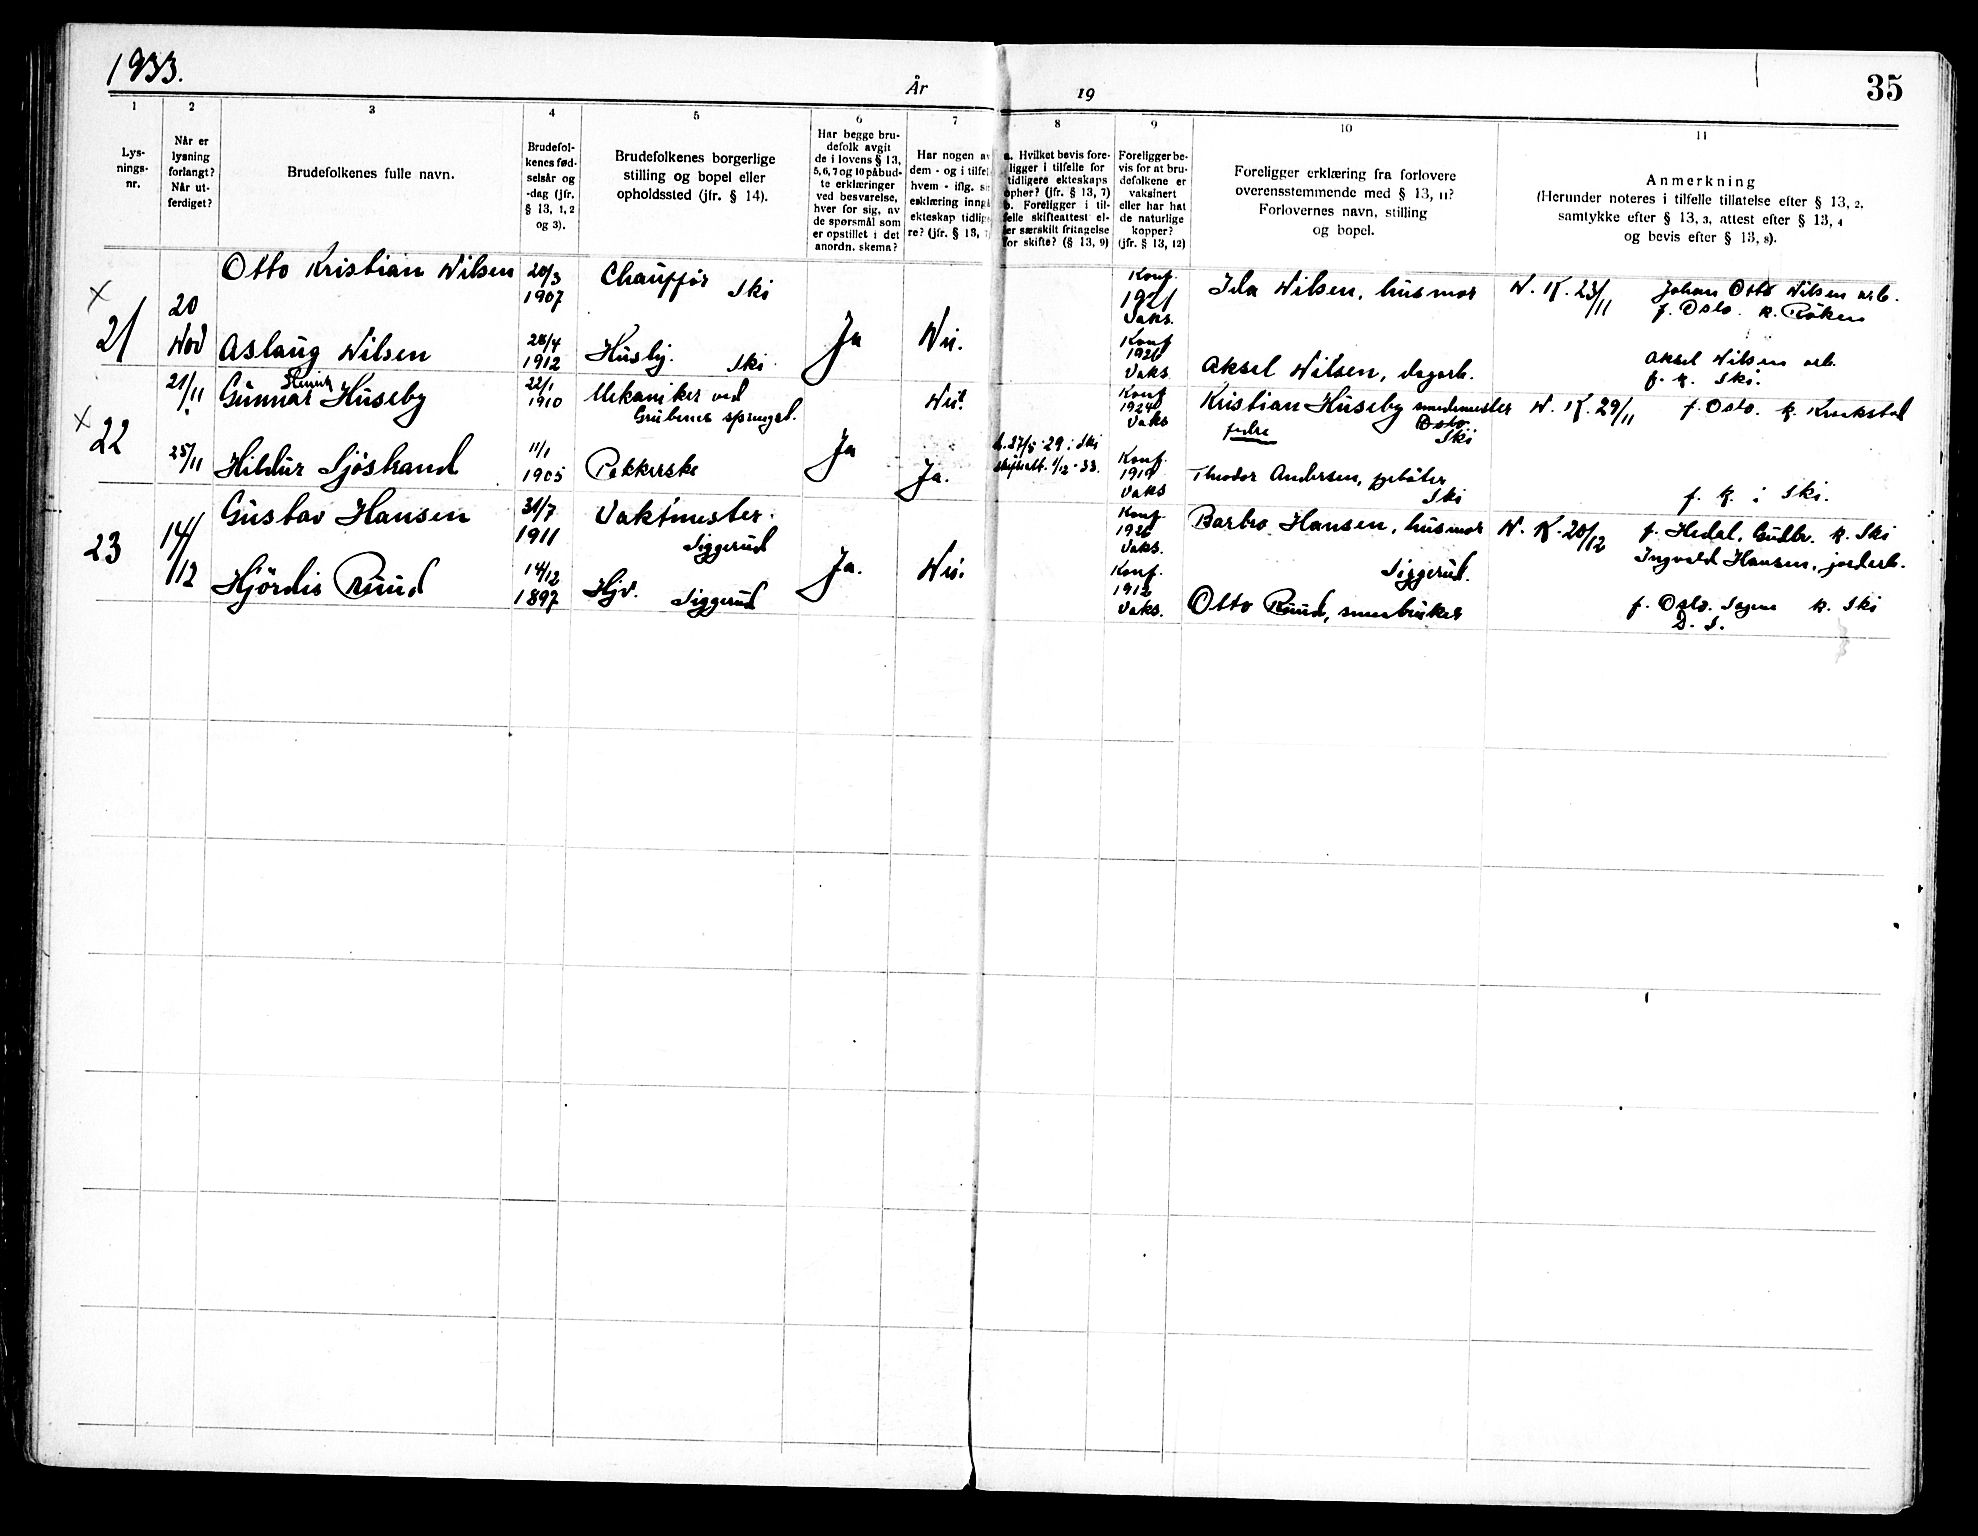 1933.
År
19
35
1
2
3
4
5
6
7
8
9
10
11
Lys-
nings-
nr.
Når er
lysning
forlangt?
Når ut-
ferdiget?
Brudefolkenes fulle navn.
Brudefol-
kenes fød-
selsår og
-dag (jfr.
§ 13, 1, 2
og 3).
Brudefolkenes borgerlige
stilling og bopel eller
opholdssted (jfr. § 14).
Har begge bru-
defolk avgit
de i lovens § 13,
5, 6, 7 og 10 påbud-
te erklæringer
ved besvarelse,
hver for sig, av
de spørsmål som
er opstillet i det
anordn. skema?
Har nogen av
dem - og i tilfel
hvem - iflg. si
erklæring inngå
ekteskap tidlige
re? (jfr. § 13, 7
a. Hvilket bevis fore-
ligger i tilfelle for
tidligere ekteskaps
ophør? (jfr. § 13, 7)
b. Foreligger i til-
felle skifteattest el-
ler særskilt fritagelse
for skifte? (§ 13, 9)
Foreligger be-
vis for at bru-
defolkene er
vaksinert
eller har hat
de naturlige
kopper?
(jfr. § 13, 12)
Foreligger erklæring fra forlovere
overensstemmende med § 13, 11?
Forlovernes navn, stilling
og bopel.
Anmerkning
(Herunder noteres i tilfelle tillatelse efter § 13, 2,
samtykke efter § 13, 3, attest efter § 13, 4
og bevis efter § 13, 8).
x
21
20
Nov
Otto Kristian Nilsen
20/3
1907
Chauffør
Ski
Aslaug Nilsen
28/4
1912
Husbj.
Ski
Ja
Nei.
Konf.
1921
Vaks.
Konf
1926
Vaks.
Ida Nilsen, husmor
Aksel Nilsen, dagarb.
N. K. 23/11
Johan Otto Nilsen arb.
f. Oslo. k. Røken
Aksel Nilsen arb.
f. k. Ski.
x
22
21/11
25/11
Gunnar Huseby
22/1
1910
Mekaniker ved
Grubernes sprengst.
Hildur Sjöstrand
11/1
1905
Pakkerske
Ja
Nei.
Ja.
27/5 29 i Ski
1/12-33.
Konf
1924
Vaks
Konf.
1919
Vaks
Kristian Huseby smedmester
Oslo
Ski
Theodor Andersen,
Ski
N. K. 29/11
f. Oslo. k. Kraakstad
f. k. i Ski.
23
14/12
Gustav Hansen
31/7
1911
Vaktmester.
Siggerud
Hjördis Ruud
14/12
1897
Hjv.
Siggerud
Ja.
Nei.
Konf
1926
Vaks.
Konf.
1912
Vaks.
Barbro Hansen, husmor
Siggerud.
Otto Ruud, smørbruker
N. K. 20/12
f. Hedal, Gudbr. k. Ski
Ingvald Hansen, jordarb.
f. Oslo. Sagene k. Ski
D. S.